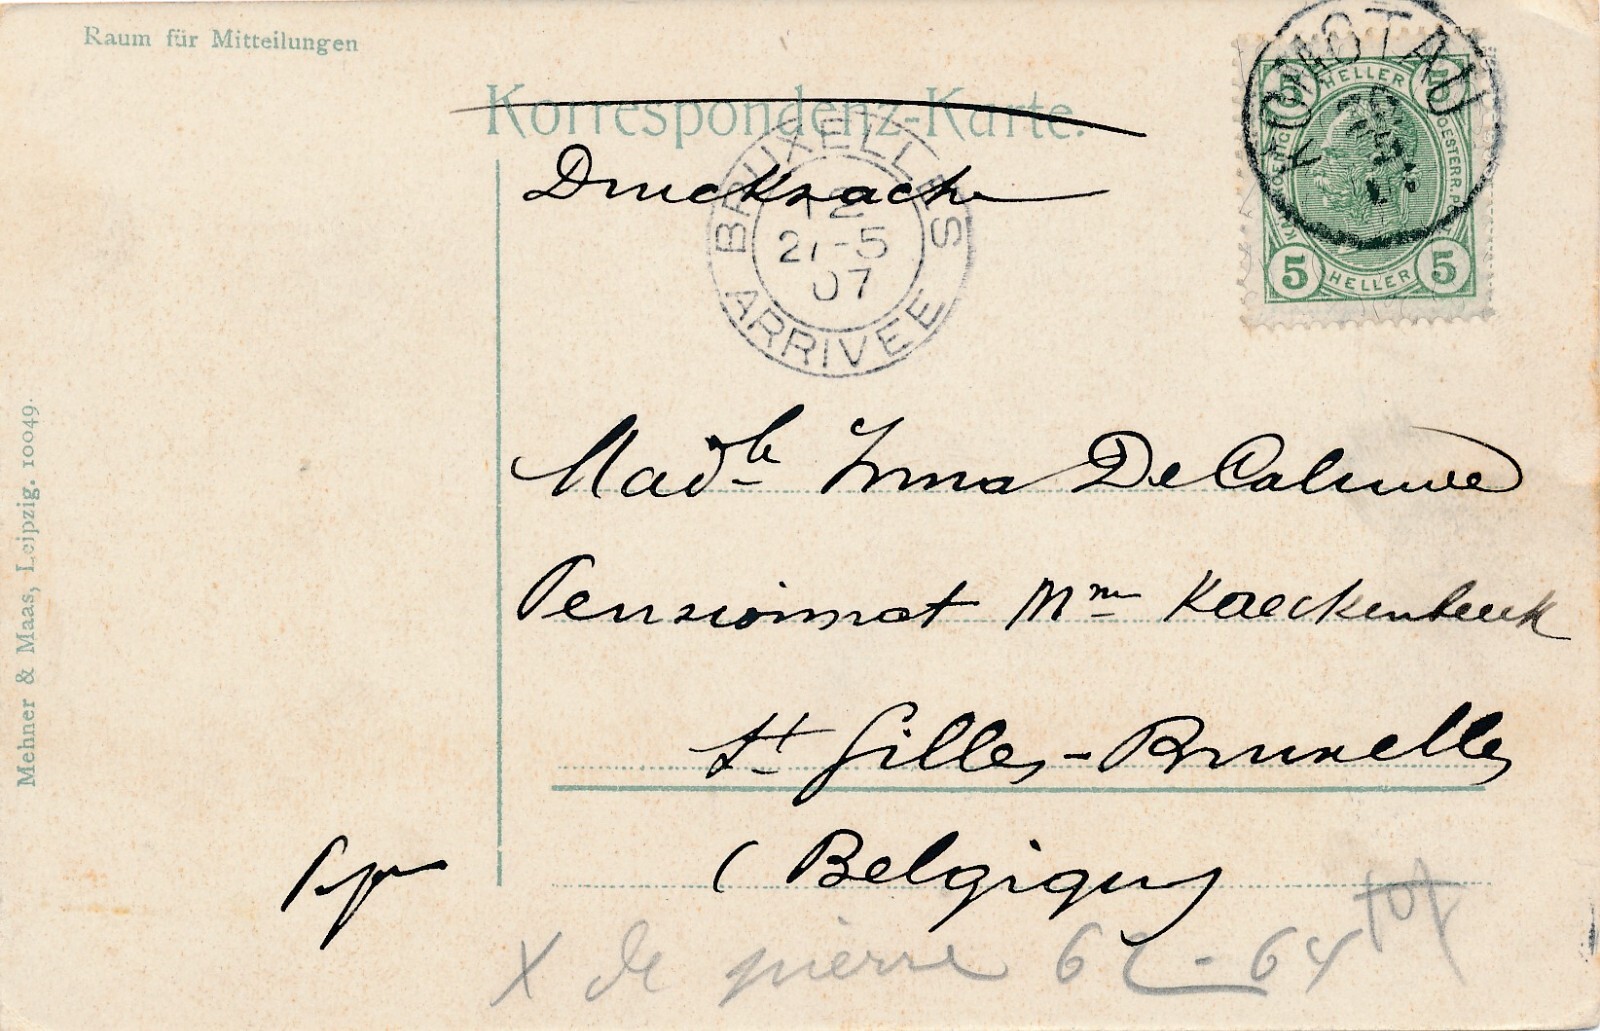 Raum für Mitteilungen
Korrespondenz-Karte.
Drucksache
BRUXELLES
12
21-5
07
ARRIVEE
KOMOTAU
5 HELLER 5
5 HELLER 5
Madlle Irma De Caluwe
Pensionnat Mme Kaeckenbeeck
St Gilles-Bruxelles
(Belgique)
X de pierre 62-64
Mehner & Maas, Leipzig. 10049.